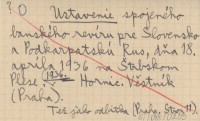 ? O Ustavenie spojeného
banského revíru pre Slovensko
a Podkarpatskú Rus, dňa 18.
apríla 1936 na Štrbskom
Plese. 1936. Hornic. Věstník
(Praha).
Též jako odbitka (Praha, Stran